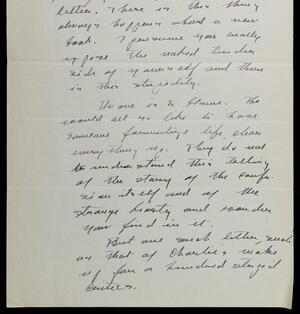 letters. There is this thing
always happens about a new
book. I presume you really
expose the naked tender
side of yourself and there
is this stupidity.
No one is to blame. We
would all so like to have
someone formulize life, clear
everything up. They do not
understand this telling
of the story of the confu-
sion itself and of the
strange beauty and wonder
you find in it.
But one such letter, such
as that of Charlie's make
up for a hundred stupid
critics.